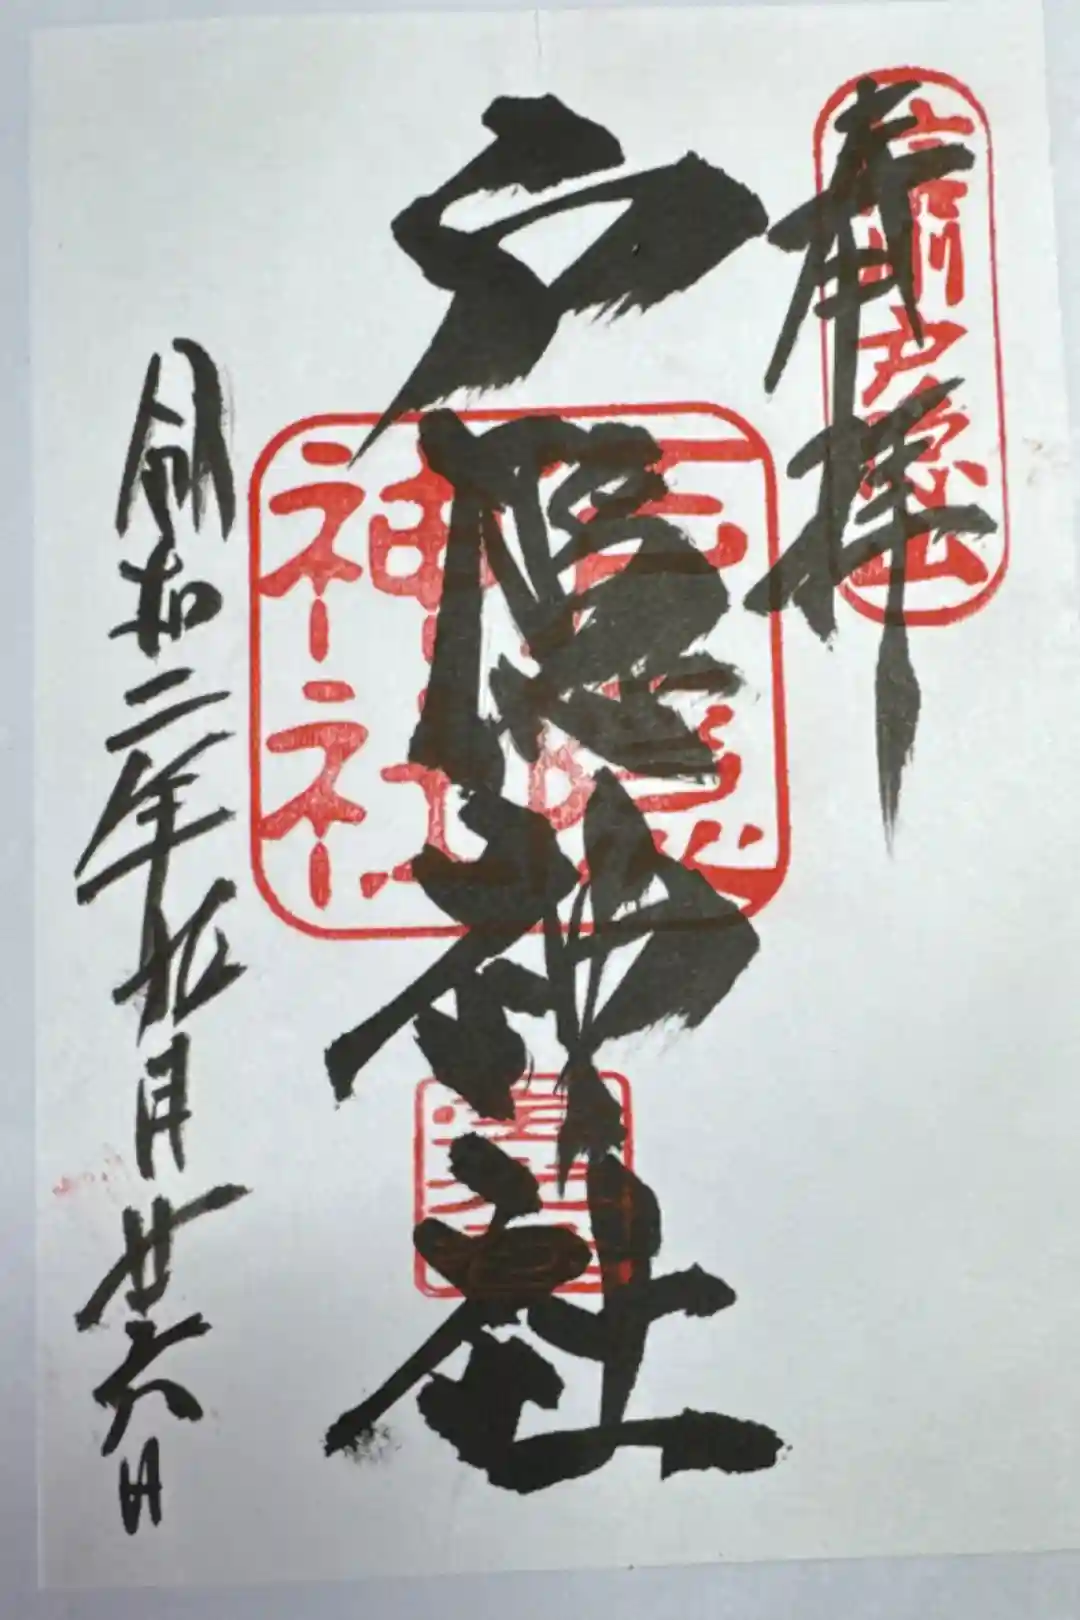 奉拝
信州戸隠山
戸隠神社
神社
令和二年九月廿六日